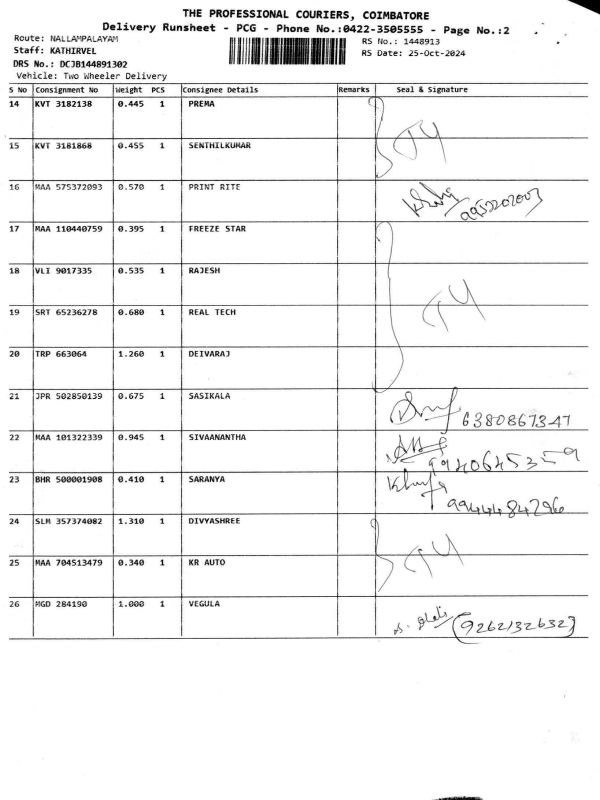 THE PROFESSIONAL COURIERS, COIMBATORE
Delivery Runsheet - PCG - Phone No.:0422-3505555 - Page No.:2
Route: NALLAMPALAYAM
RS No.: 1448913
Staff: KATHIRVEL
RS Date: 25-Oct-2024
DRS No.: DCJB144891302
Vehicle: Two Wheeler Delivery
S No Consignment No Weight PCS Consignee Details Remarks Seal & Signature
14 KVT 3182138 0.445 1 PREMA
15 KVT 3181868 0.455 1 SENTHILKUMAR
16 MAA 575372093 0.570 1 PRINT RITE
17 MAA 110440759 0.395 1 FREEZE STAR
18 VLI 9017335 0.535 1 RAJESH
19 SRT 65236278 0.680 1 REAL TECH
20 TRP 663064 1.260 1 DEIVARAJ
21 JPR 502850139 0.675 1 SASIKALA 6380867347
22 MAA 101322339 0.945 1 SIVAANANTHA 9940645359
23 BHR 500001908 0.410 1 SARANYA 9944484296
24 SLM 357374082 1.310 1 DIVYASHREE
25 MAA 704513479 0.340 1 KR AUTO
26 MGD 284190 1.000 1 VEGULA (9262132632)